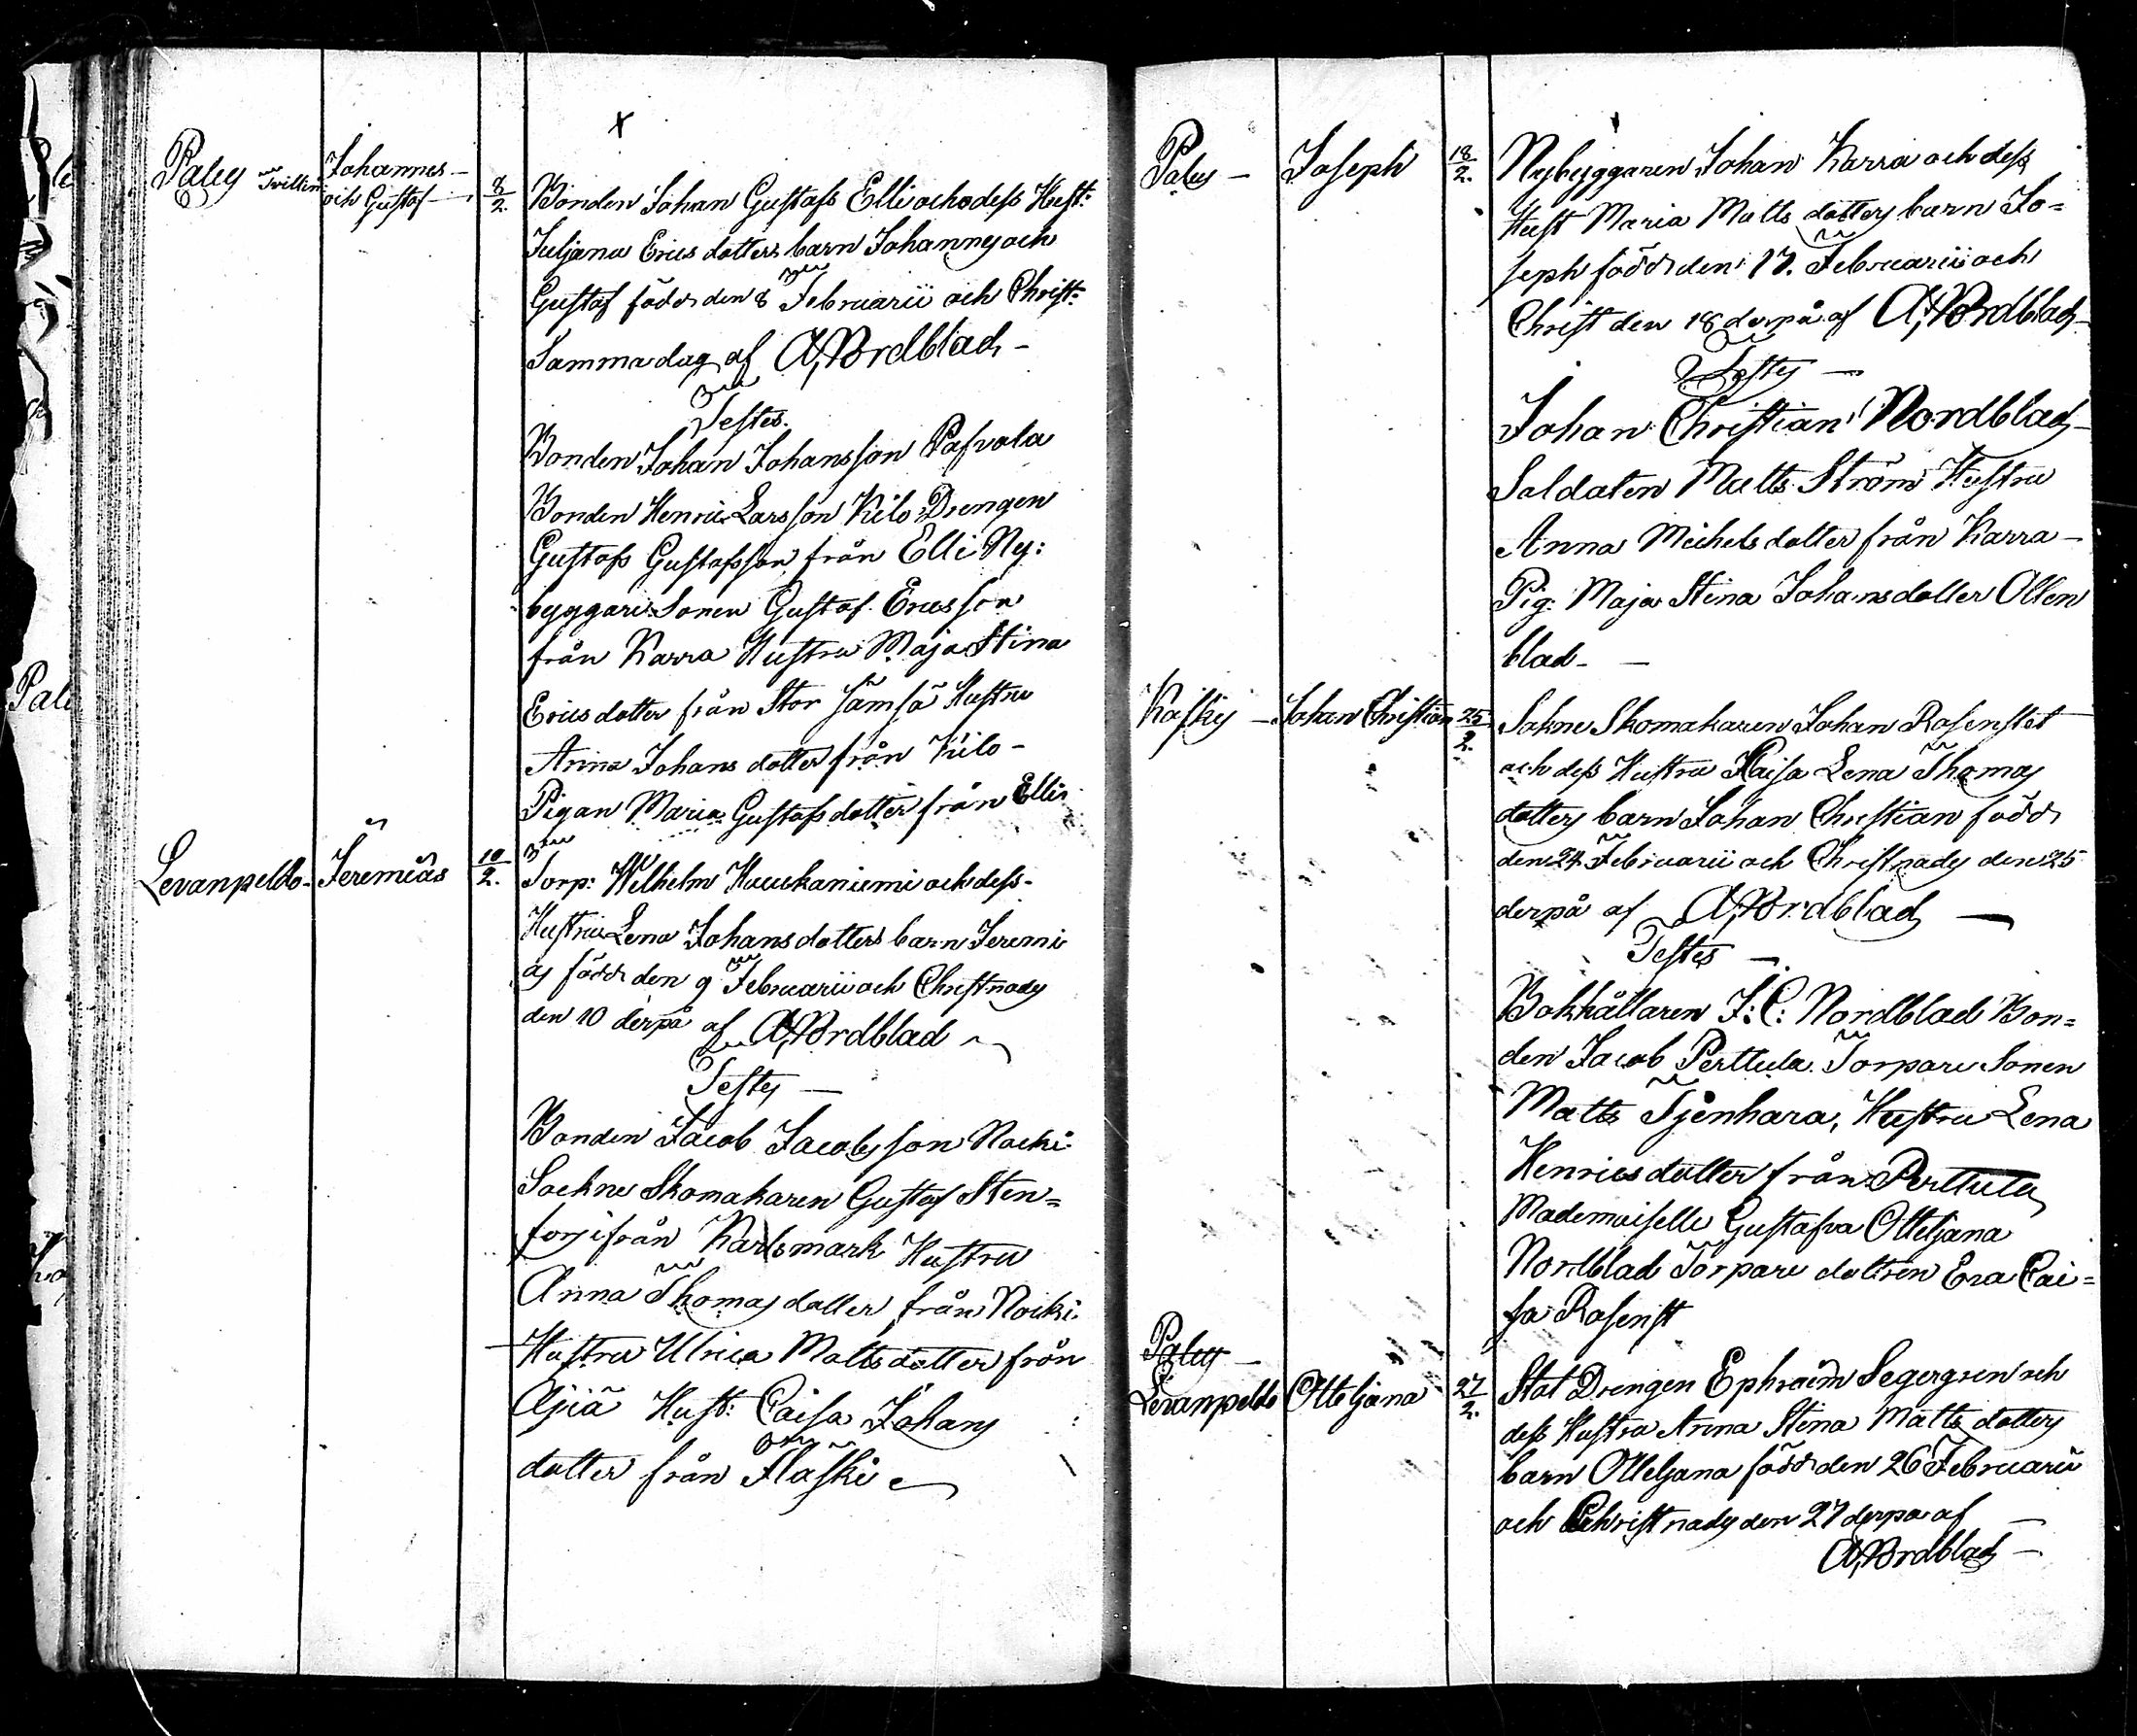 Palus Tvillin: Johannes
och Gustaf 8/2. Bonden Johan Gustafs Elli och dess Hust:
Juljana Erics dotters barn Johannes och
Gustaf född den 8 Februarii och Christ:
Samma dag af A, Nordblad
Testes.
Bonden Johan Johansson Pafvola
Bonden Henric Larsson Kilo Drengen
Gustafs Gustafsson från Elli Ny:
byggare Sonen Gustaf Ericsson
från Karra Hustru Maja Stina
Erics dotter från Stor Jämsä Hustru
Anna Johans dotter från Kilo
Pigan Maria Gustafs dotter från Elli
Levanpeldo Jeremias 10/2. Torp: Wilhelm Kuuskaniemi och dess
Hustru Lena Johans dotters barn Jeremi
as född den 9 Februarii och Christnades
den 10 derpå af A, Nordblad
Testes
Bonden Jacob Jacobsson Nocki
Sockne Skomakaren Gustaf Sten=
fors ifrån Karlsmark Hustru
Anna Thomas dotter från Nocki
Hustru Ulrica Matts dotter från
Hust: Caisa Johans
dotter från Flaski
Palus Joseph 18/2. Nybyggaren Johan Karra och dess
Hust Maria Matts dotters barn Jo=
seph född den 17. Februarii och
Christ den 18 derpå af A, Nordblad
Testes
Johan Christian Nordblad
Soldaten Matts Ström Hustru
Anna Michels dotter från Karra
Pig: Maja Stina Johans dotter Allen
blad
Kaskis Johan Christian 25/2. Sokne Skomakaren Johan Rosenstet
och dess Hustru Kaisa Lena Thomas
dotters barn Johan Christian född
den 24 Februarii och Christnades den 25
derpå af A, Nordblad
Testes
Bokhållaren J: C: Nordblad Bon=
den Jacob Perttula Torpare Sonen
Matts Tjenhara, Hustru Lena
Henrics dotter från Perttula
Mademoiselle Gustafva Otteljana
Nordblad Torpare dottren Eva Cai=
sa Rosenst
Palus
Levanpeldo Otteljana 27/2. Stat Drengen Ephraim Segergren och
dess Hustru Anna Stina Matts dotters
barn Otteljana född den 26 Februarii
och Christnades den 27 derpå af
A, Nordblad